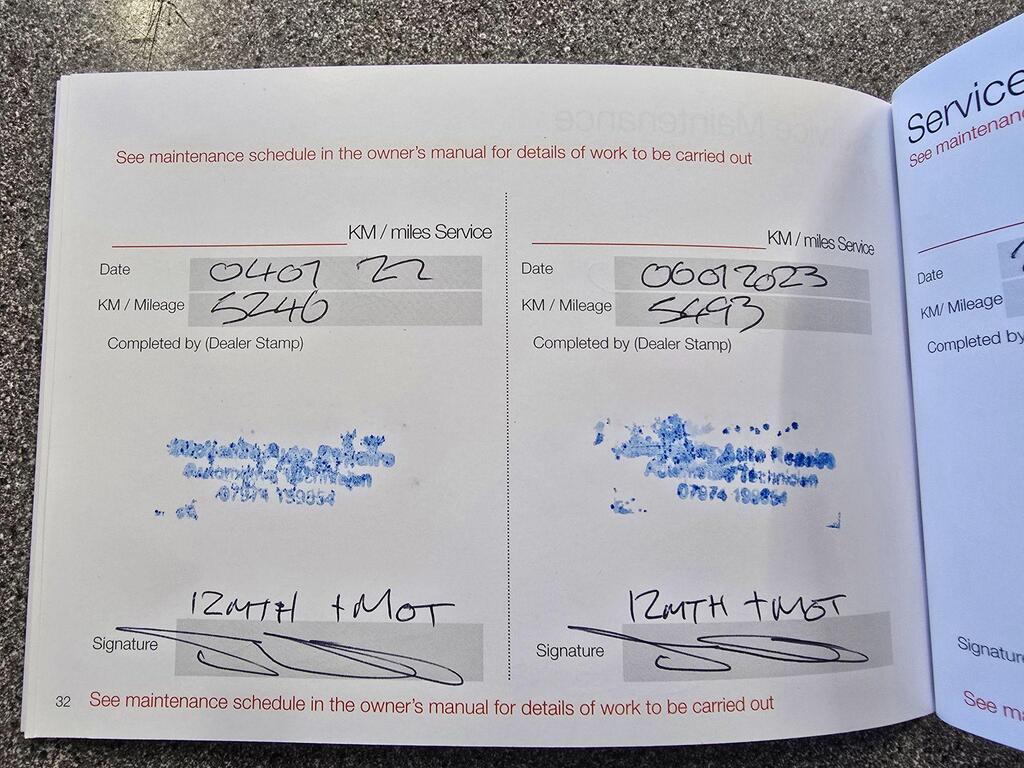 See maintenance schedule in the owner's manual for details of work to be carried out
KM / miles Service
Date 0407 22
KM / Mileage 5246
Completed by (Dealer Stamp)
Automotive Technician
07974 199854
12MTH + MOT
Signature
KM / miles Service
Date 06072023
KM / Mileage 5493
Completed by (Dealer Stamp)
Auto Repairs
Automotive Technician
07974 199854
12MTH + MOT
Signature
32 See maintenance schedule in the owner's manual for details of work to be carried out
Service
See
Date
KM/ Mileage
Completed by
See